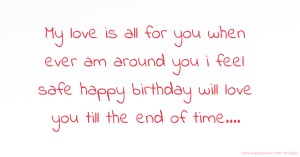 My love is all for you when
ever am around you i feel
safe happy birthday will love
you till the end of time....